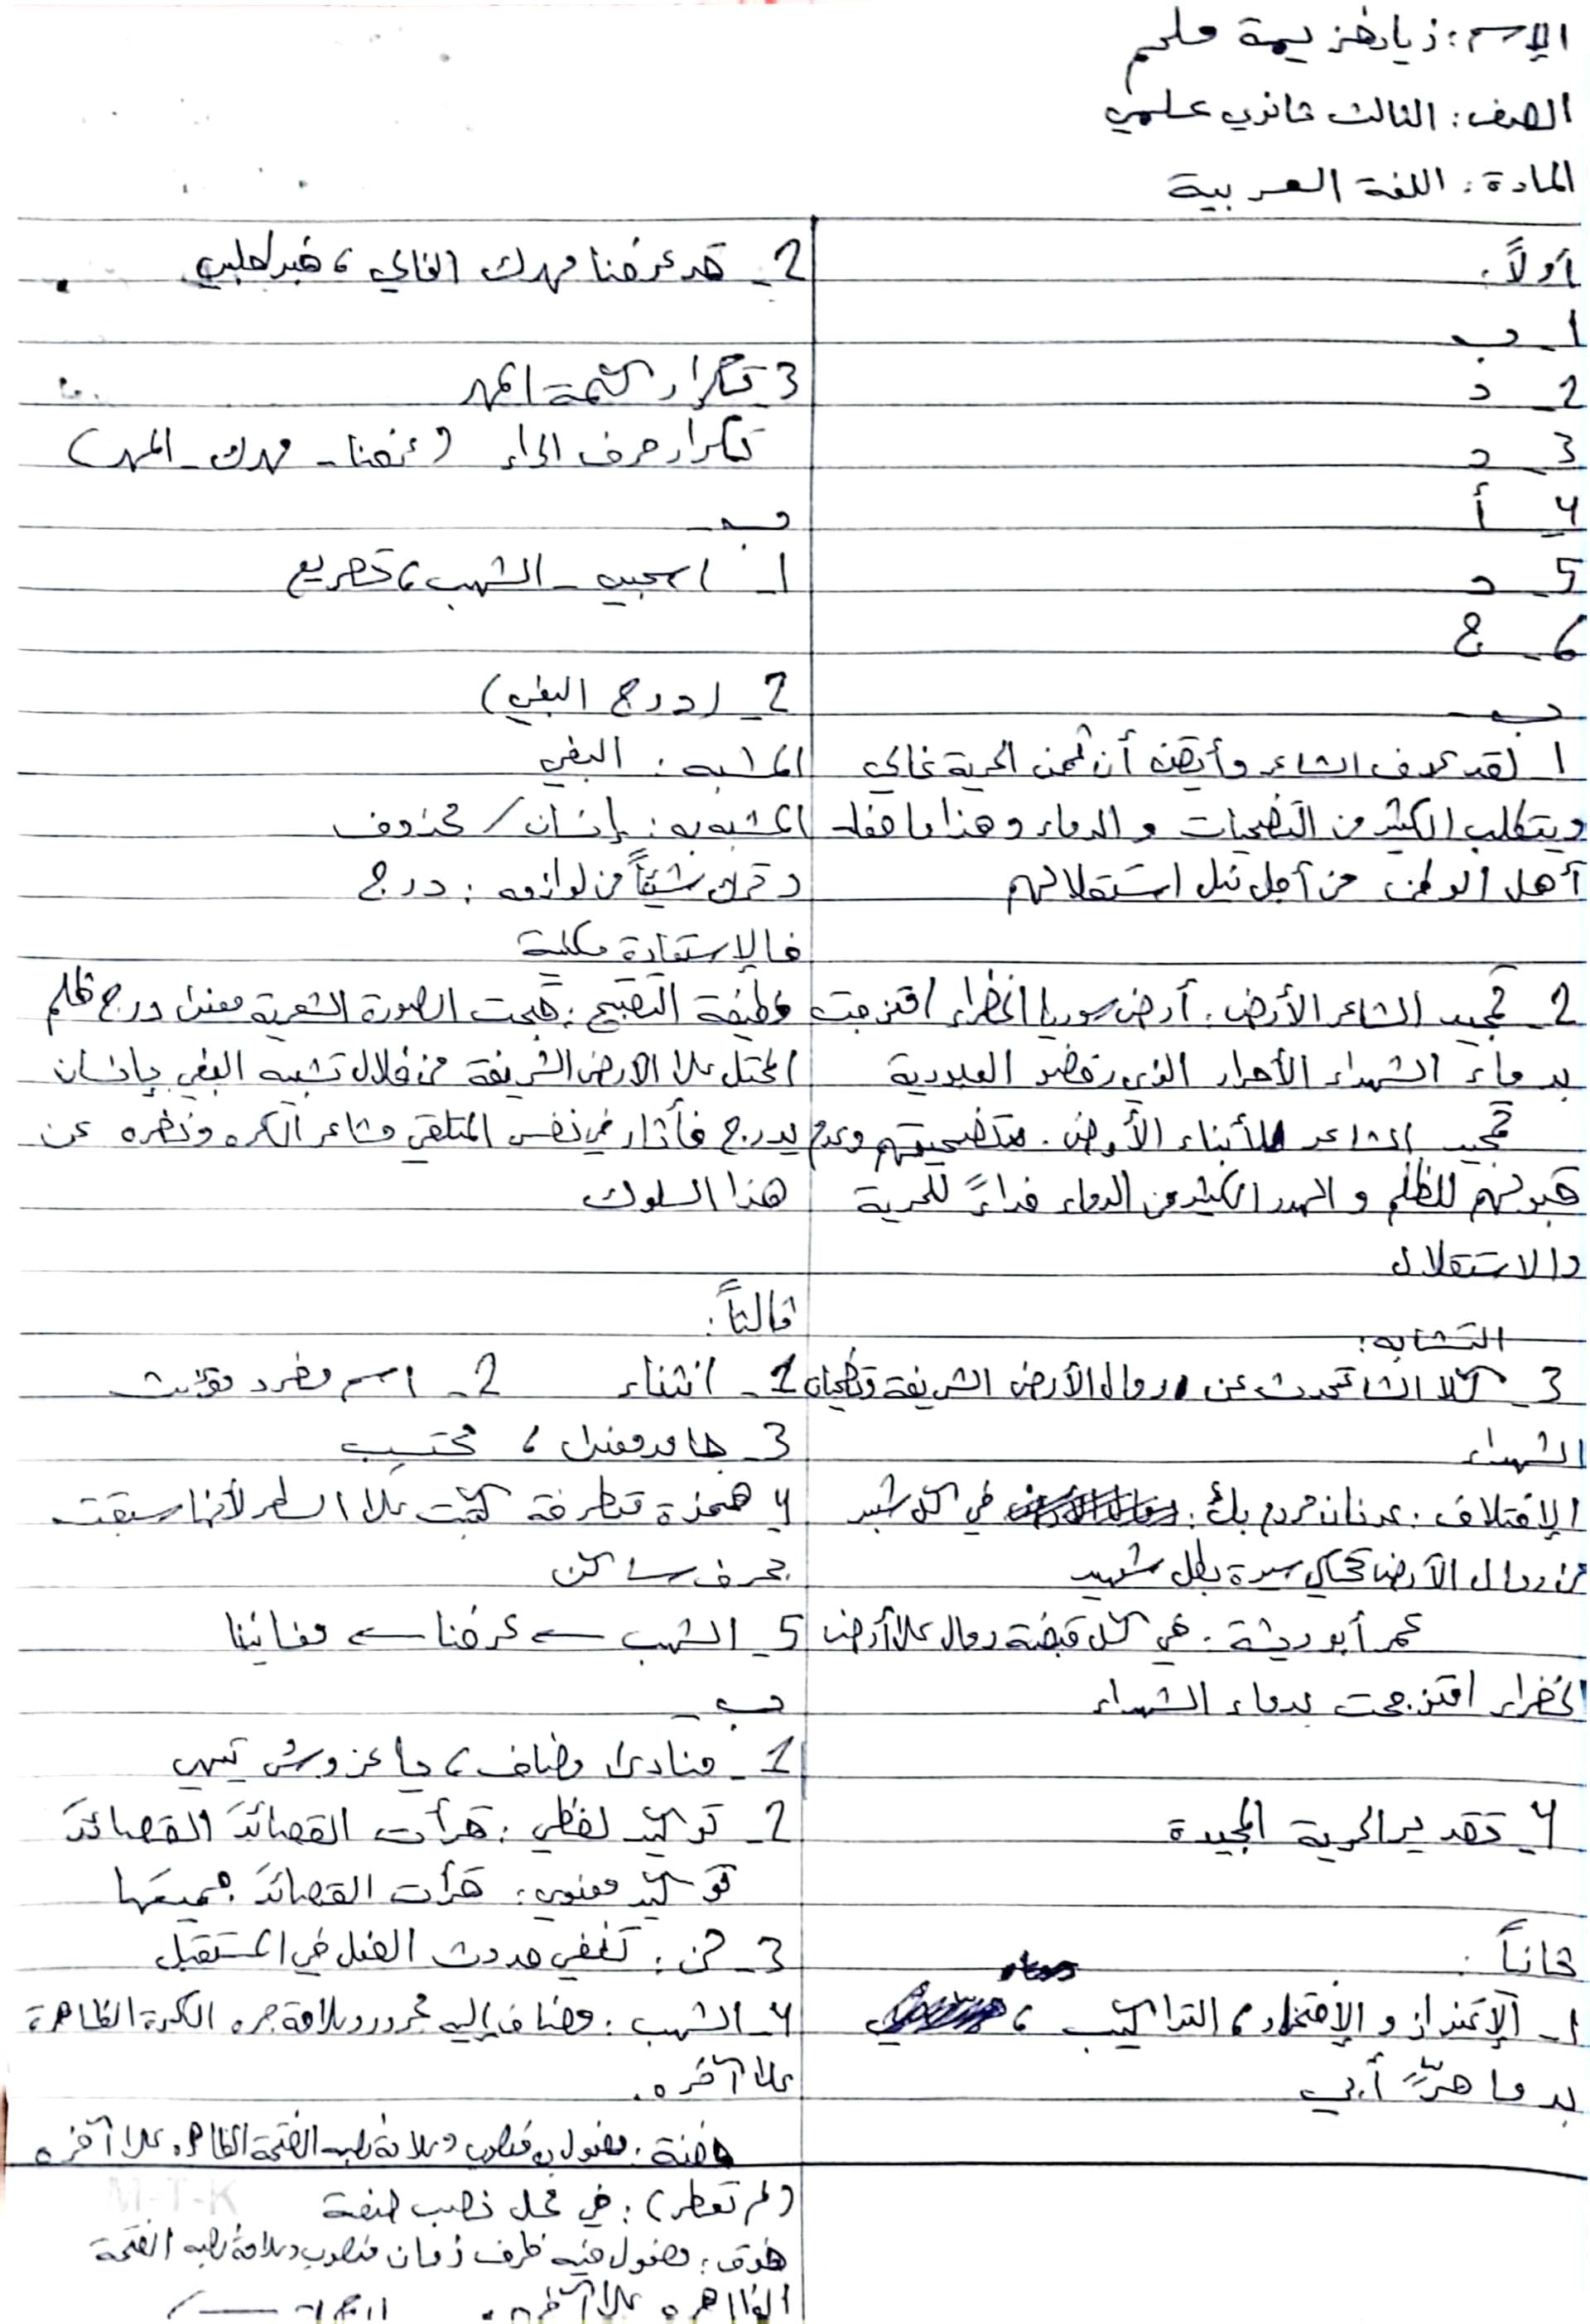 الإسم: زياد خزيمة ملحم
الصف: الثالث ثانوي علمي
المادة: اللغة العربية
أولاً:
1_ ب
2_ د
3_ د
4_ أ
5_ د
6_ ج
ب_
1_ لقد عرف الشاعر وأيقن أن ثمن الحرية غالي
ويتطلب الكثير من التضحيات و الدماء وهذا ما فعله
أهل الوطن من أجل نيل استقلالهم
2_ تمجيد الشاعر الأرض: أرض سوريا الخضراء امتزجت
بدماء الشهداء الأحرار الذي رفضو العبودية
تمجيد الشاعر للأبناء الأرض: تضحيتهم وعدم
قبولهم للظلم و الهدر الكثير من الدماء فداءً للحرية
والاستقلال
التشابه:
3_ كلا الشا تحدث عن رمال الأرض الشريفة وتضحيات
الشهداء
الإختلاف: عدنان مردم بك: في كل شبر
من رمال الأرض تحكي سيرة بطل شهيد
عمر أبو ريشة: في كل قبضة رمال على أرض
الخضراء امتزجت بدماء الشهداء
4_ تقدير الحرية المجيدة
ثانياً:
1_ الإعتزاز و الإفتخار، التراكيب،
بدما حرٍّ أبي
2_ قد عرفنا مهرك الغالي، خبر طلبي
3_ تكرار كلمة المهر
تكرار حرف الراء (عرفنا_ مهرك_ المهر)
ب_
1_ اسحبي_ الشهب، تصريع
2_ (درج البغي)
المشبه: البغي
المشبه به: إنسان / محذوف
و ترك شيئاً من لوازمه: درج
فالإستعارة مكنية
وظيفة التقبيح: قبحت الصورة الشعرية معنى درج ظلم
المحتل على الارض الشريفة من خلال تشبيه البغي بإنسان
يدرج فأثار في نفس المتلقي مشاعر الكره ونفره عن
هذا السلوك
ثالثاً:
1_ انثناء 2_ اسم مفرد مؤنث
3_ جامد معنى، محتسب
4_ همزة متطرفة كتبت على السطر لأنها سبقت
بحرف ساكن
5_ الشهب ← عرفنا ← مغانينا
ب_
1_ منادى مضاف، يا عروس تيهي
2_ توكيد لفظي: قرأت القصائدَ القصائدَ
توكيد معنوي: قرأت القصائدَ جميعَها
3_ لن: تنفي حدوث الفعل في المستقبل
4_ الشهب: مضاف إليه مجرور وعلامة جره الكسرة الظاهرة
على آخره.
حفنة: مفعول به منصوب وعلامة نصبه الفتحة الظاهرة على آخره
(لم تعطر): في محل نصب صفة
فوق: مفعول فيه ظرف زمان منصوب وعلامة نصبه الفتحة
الظاهره على آخره.